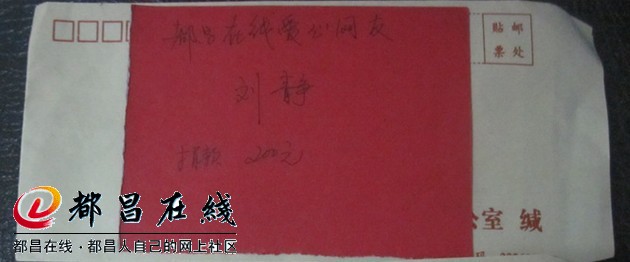 贴 邮
票 处
都昌在线爱心网友
刘静
捐款 200元
公室 缄
都昌在线
都昌在线·都昌人自己的网上社区